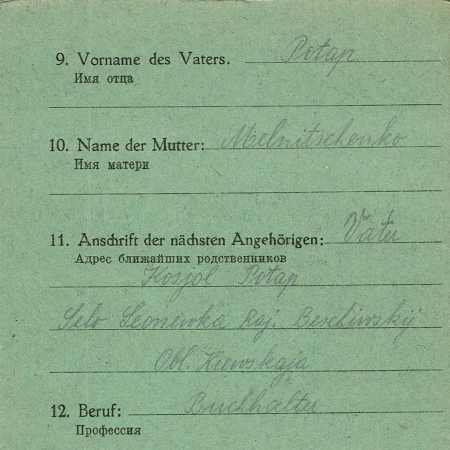 9. Vorname des Vaters. Potap
Имя отца
10. Name der Mutter: Melnitschenko
Имя матери
11. Anschrift der nächsten Angehörigen: Vater
Адрес ближайших родственников
Kosjol Potap
Selo Leonewka Raj. Beschiwskij
Obl. Kiewskaja
12. Beruf: Buchhalter
Профессия